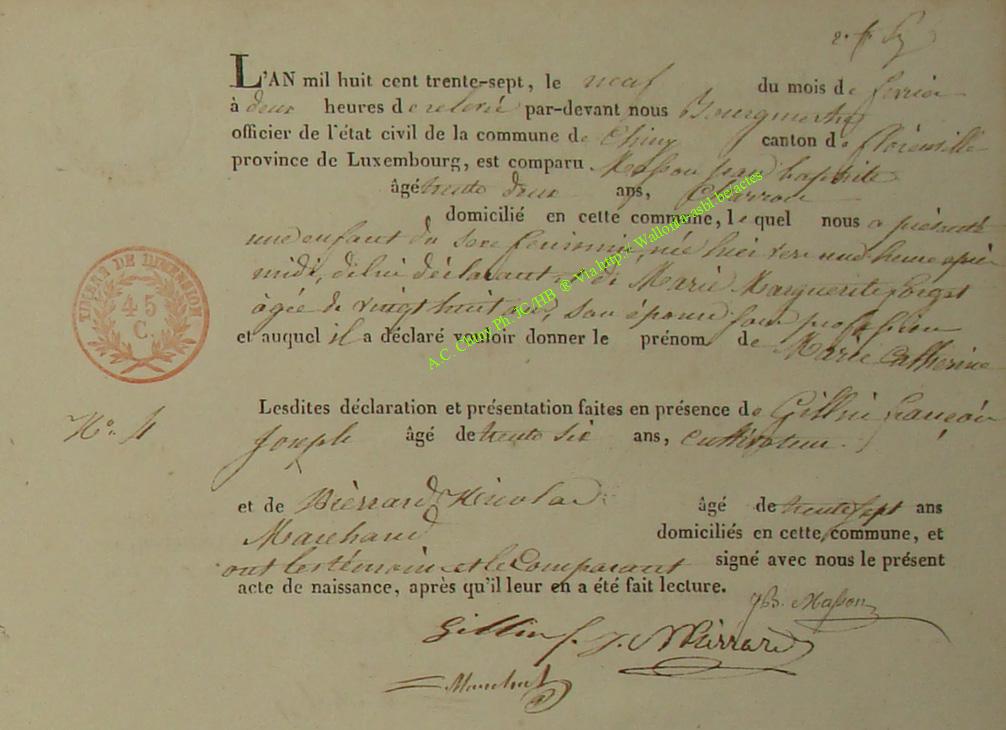 L'AN mil huit cent trente-sept, le neuf du mois de fevrier
à deux heures de relevée par-devant nous Bourgmestre
officier de l'état civil de la commune de Chiny canton de florenville
province de Luxembourg, est comparu Masson jean baptiste
âgé trente deux ans, Charron
domicilié en cette commune, lequel nous a présenté
une enfant du sexe feminin, née hier vers une heure après
midi, de lui déclarant, et de Marie Marguerite Forget
âgée de vingt huit ans, son épouse sans profession
et auquel il a déclaré vouloir donner le prénom de Marie Catherine
Lesdites déclaration et présentation faites en présence de Gillin françois
N° 4
joseph âgé de trente six ans, cultivateur.
et de Pierrard Nicolas âgé de trente sept ans
Marchand domiciliés en cette commune, et
ont les témoins et le Comparant signé avec nous le présent
acte de naissance, après qu'il leur en a été fait lecture.
JB. Masson
Gillin f. j. N Pierrard
TIMBRE DE DIMENSION
45
C.
A.C. Chiny Ph. JC/HB ® Via http:// Wallonia-asbl.be/actes